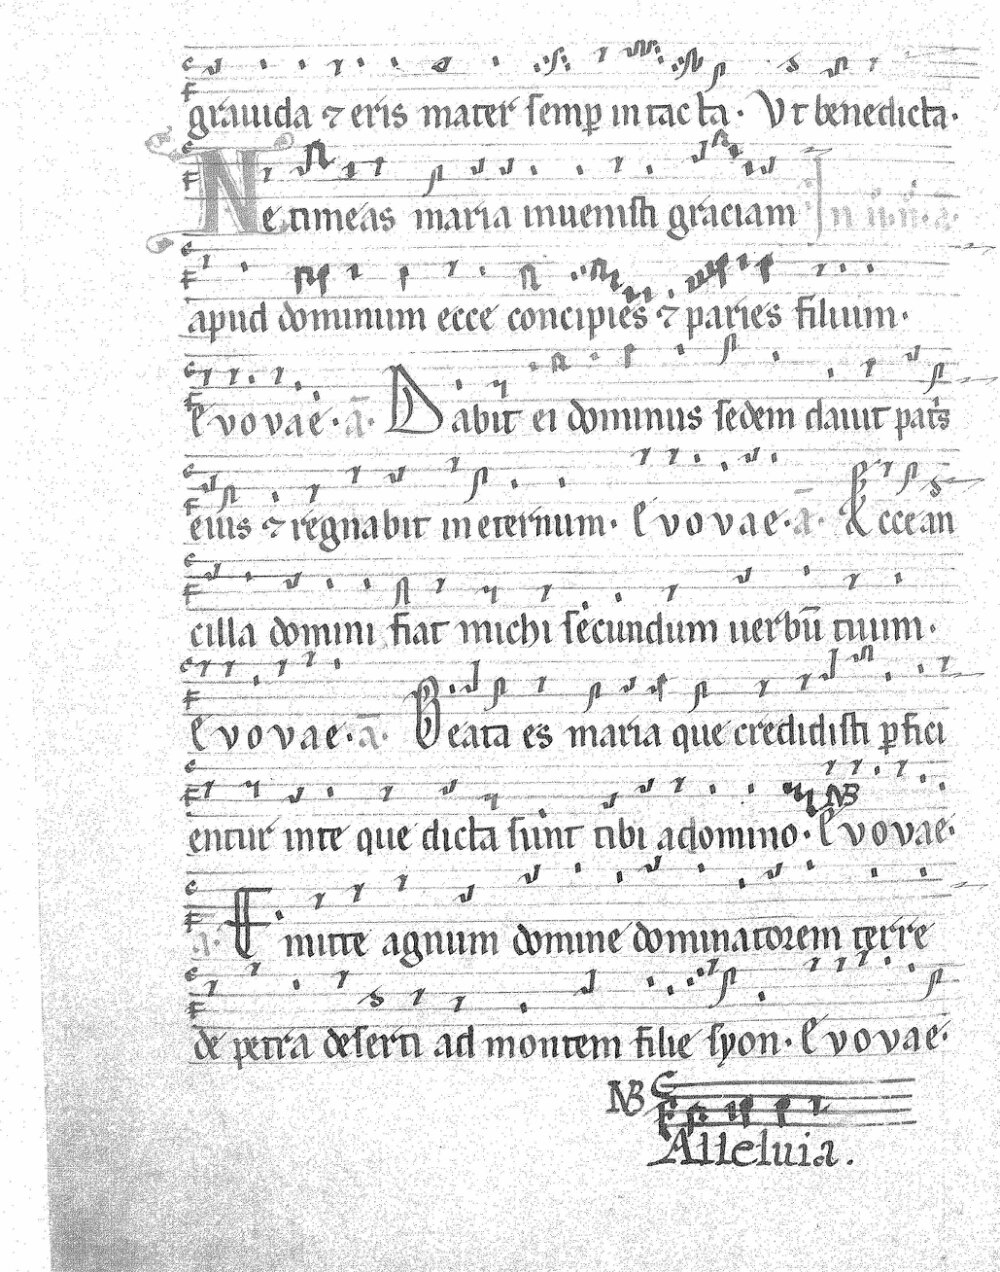 grauida ⁊ eris mater semꝑ intacta. Vt benedicta.
Ne timeas maria inuenisti graciam In
apud dominum ecce concipies ⁊ paries filium.
Evovae. a̅. Dabit ei dominus sedem dauit patris
eius ⁊ regnabit in eternum. Evovae. a̅. Ecce an
cilla domini fiat michi secundum uerbū tuum.
Evovae. a̅. Beata es maria que credidisti ꝑfici
entur in te que dicta sunt tibi a domino. Evovae.
NB
a. Emitte agnum domine dominatorem terre
de petra deserti ad montem filie syon. Evovae.
NB
Alleluia.